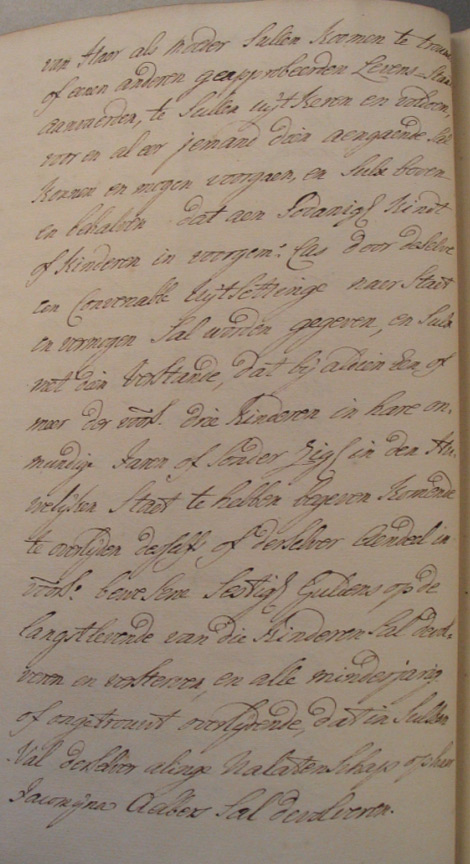 van Haar als moeder sullen koomen te trouwe
of eenen anderen geapprobeerden Levens Staat
aanverden, te sullen uijtkeren en voldoen,
voor en al eer jemand dien aengaende sal
konnen en mogen voorgaen, en sulx boven
en behalven dat aen sodanigh kindt
of kinderen in voorgem: Cas door deselve
een Convenable uijtsettinge naer staat
en vermogen sal worden gegeven, en sulx
met dien verstande, dat bij aldien een of
meer der voors: drie kinderen in hare on:
mundige Jaren of sonder zigh in den Hu
welijken staat te hebben begeven komende
te overlijden desselfs of derselver aendeel in
voors: bewesene sestigh guldens op de
langstlevende van die kinderen sal devol:
veren en versterven, en alle minderjarig
of ongetrouwt overlijdende, dat in sulken
val derselver alinge Nalatenschap op haer
Jacomijna Aelbers sal devolveren.